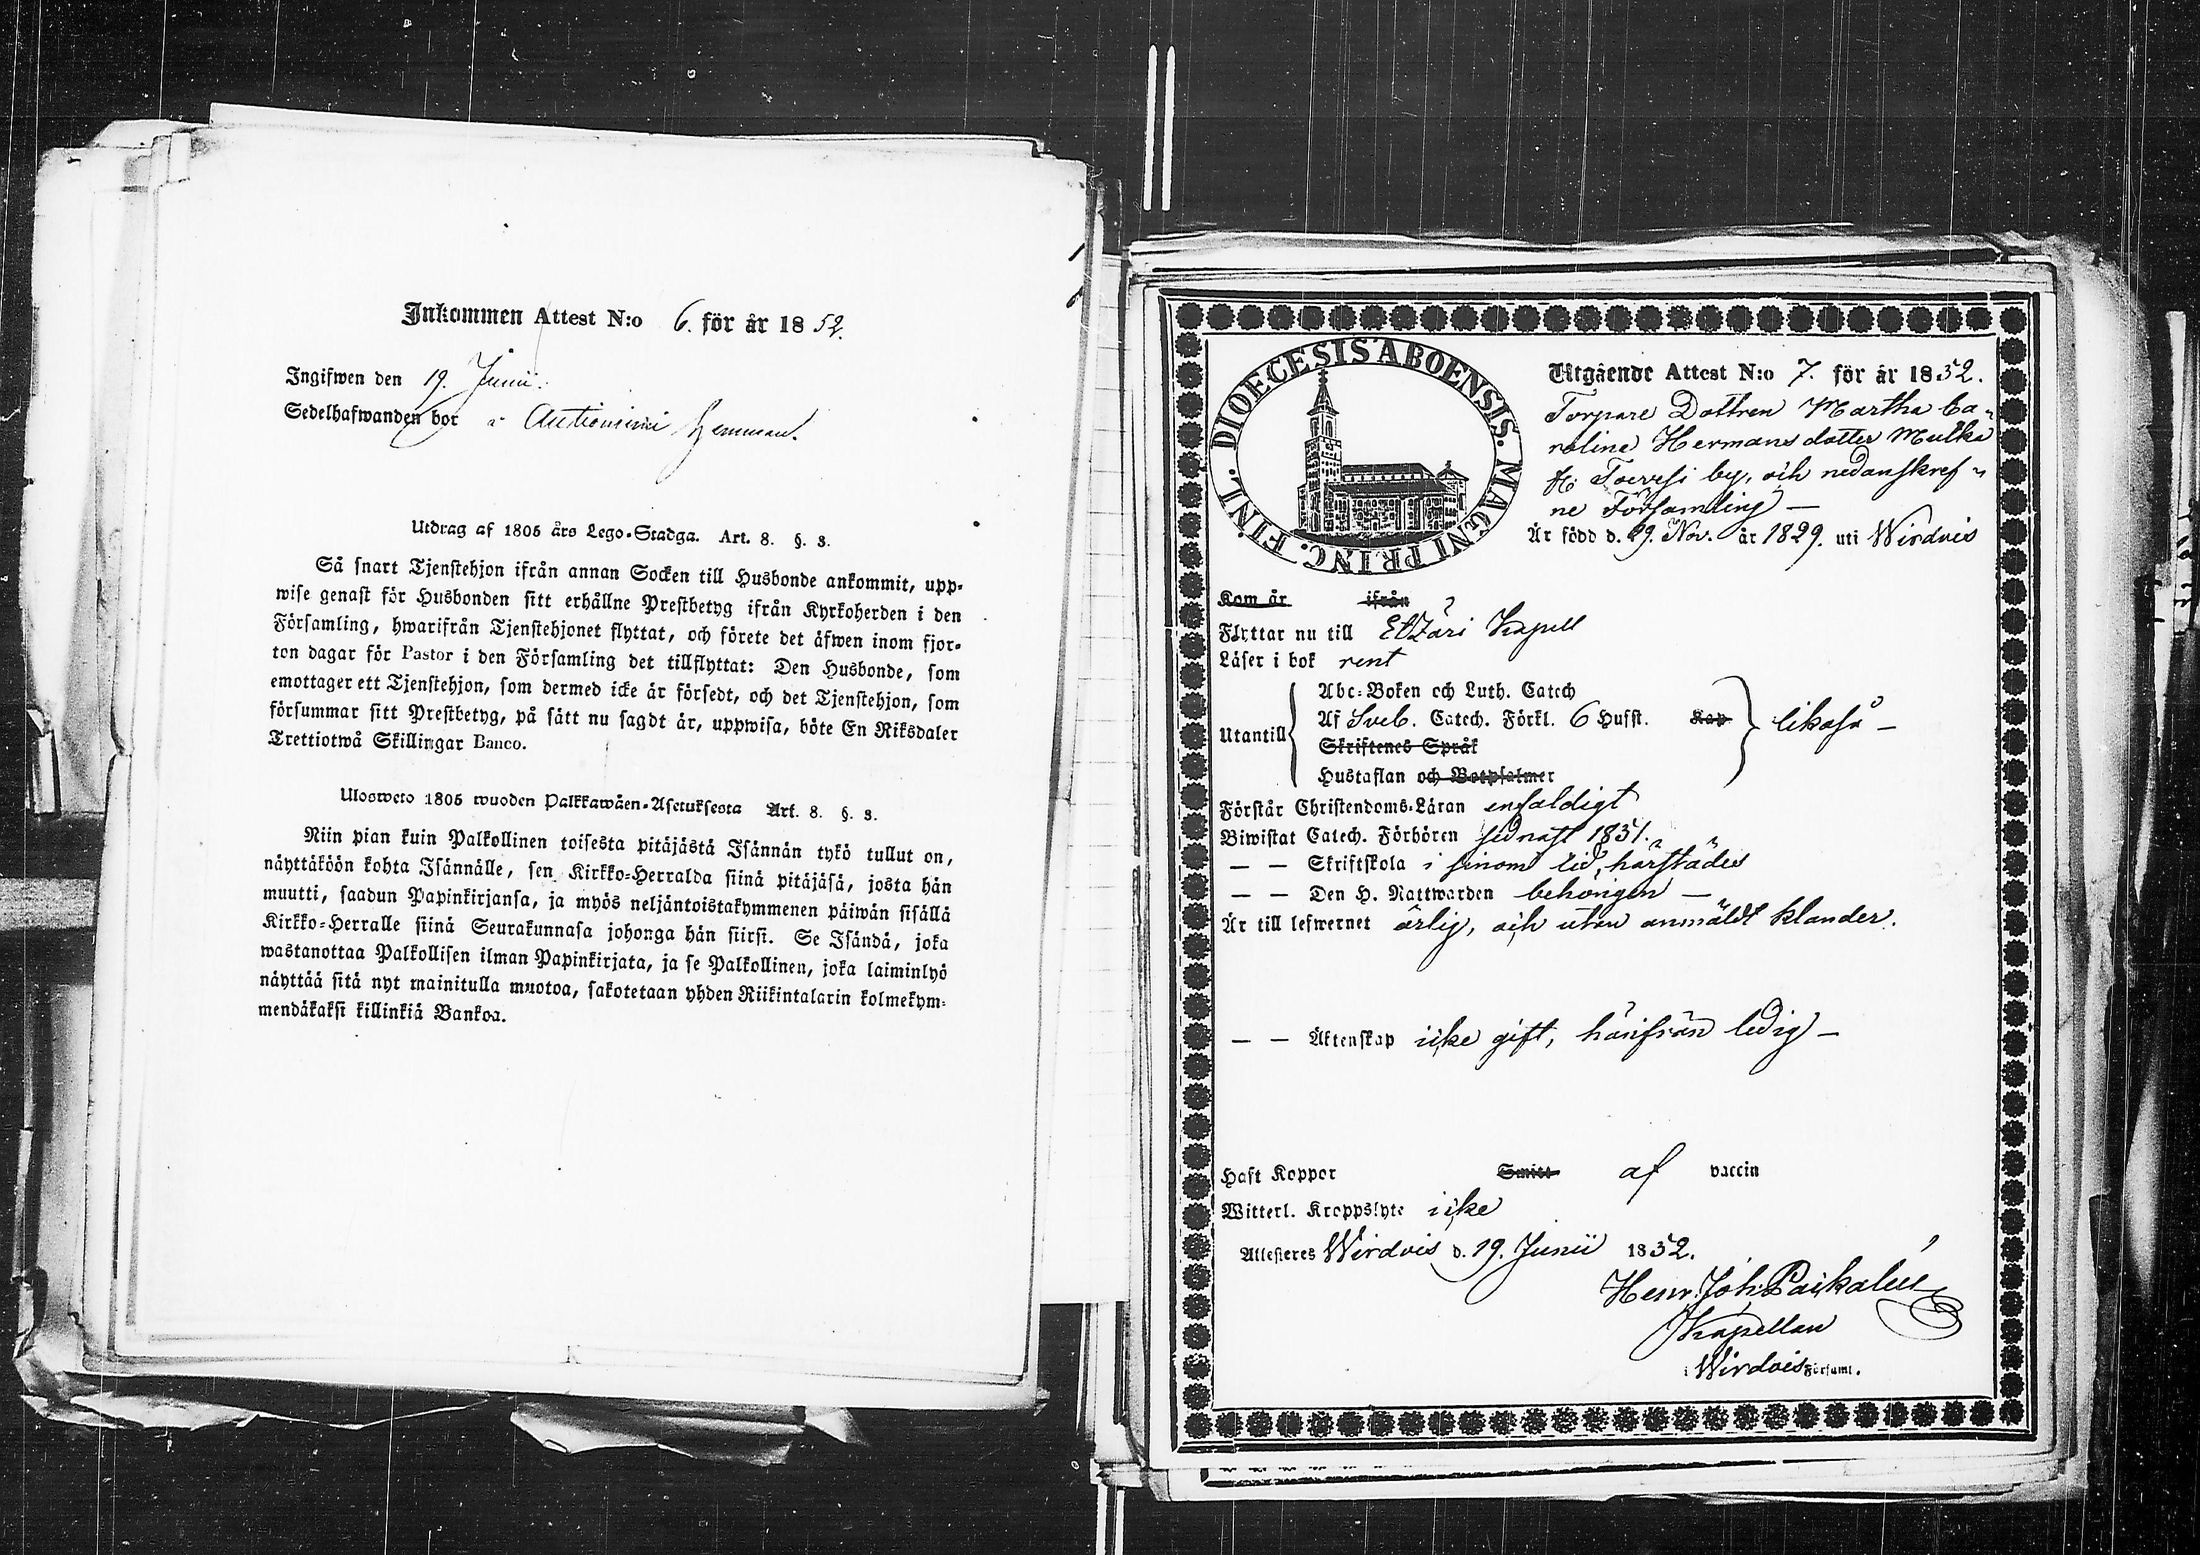 Inkommen Attest N:o 6. för år 1852.
Ingifwen den 19. Junii.
Sedelhafwanden bor å hemman.
Utdrag af 1805 års Lego-Stadga. Art. 8. §. 3.
Så snart Tjenstehjon ifrån annan Socken till Husbonde ankommit, upp-
wise genast för Husbonden sitt erhållne Prestbetyg ifrån Kyrkoherden i den
Församling, hwarifrån Tjenstehjonet flyttat, och förete det äfwen inom fjor-
ton dagar för Pastor i den Församling det tillflyttat: Den Husbonde, som
emottager ett Tjenstehjon, som dermed icke är försedt, och det Tjenstehjon, som
försummar sitt Prestbetyg, på sätt nu sagdt är, uppwisa, böte En Riksdaler
Trettiotwå Skillingar Banco.
Ulosweto 1805 wuoden Palkkawäen-Asetuksesta Art. 8. §. 3.
Niin pian kuin Palkollinen toisesta pitäjästä Isännän tykö tullut on,
näyttäköön kohta Isännälle, sen Kirkko-Herralda siinä pitäjäsä, josta hän
muutti, saadun Papinkirjansa, ja myös neljäntoistakymmenen päiwän sisällä
Kirkko-Herralle siinä Seurakunnasa johonga hän siirsi. Se Isändä, joka
wastanottaa Palkollisen ilman Papinkirjata, ja se Palkollinen, joka laiminlyö
näyttää sitä nyt mainitulla muotoa, sakotetaan yhden Riikintalarin kolmekym-
mendäkaksi killinkiä Bankoa.
DIOECESIS ABOENSIS. MAGNI PRINC. FINL.
Utgående Attest N:o 7. för år 1852.
Torpare Dottren Martha Ca-
rolina Hermansdotter Mulka
fr. by, och nedanskref-
ne Församling —
Är född d. 29. Nov. år 1829. uti Wirdois
Kom år ifrån
Flyttar nu till Etzäri Kapell
Läser i bok rent
Utantill
Abc-Boken och Luth. Catech
Af Sveb. Catech. Förkl. 6 Hufst. Kap
Skriftenes Språk
Hustaflan och Botpsalmer
likaså —
Förstår Christendoms-Läran enfaldigt
Biwistat Catech. Förhören sednast 1851.
— — Skriftskola i sinom tid, härstädes
— — Den H. Nattwarden behörigen —
Är till lefwernet ärlig, och utan anmäldt klander.
— — Äktenskap icke gift, härifrån ledig —
Haft Koppor Smitt af vaccin
Witterl. Kroppslyte icke
Attesteres Wirdois d. 19. Junii 1852.
Henr. Joh.
Kapellan
i Wirdois Församl.